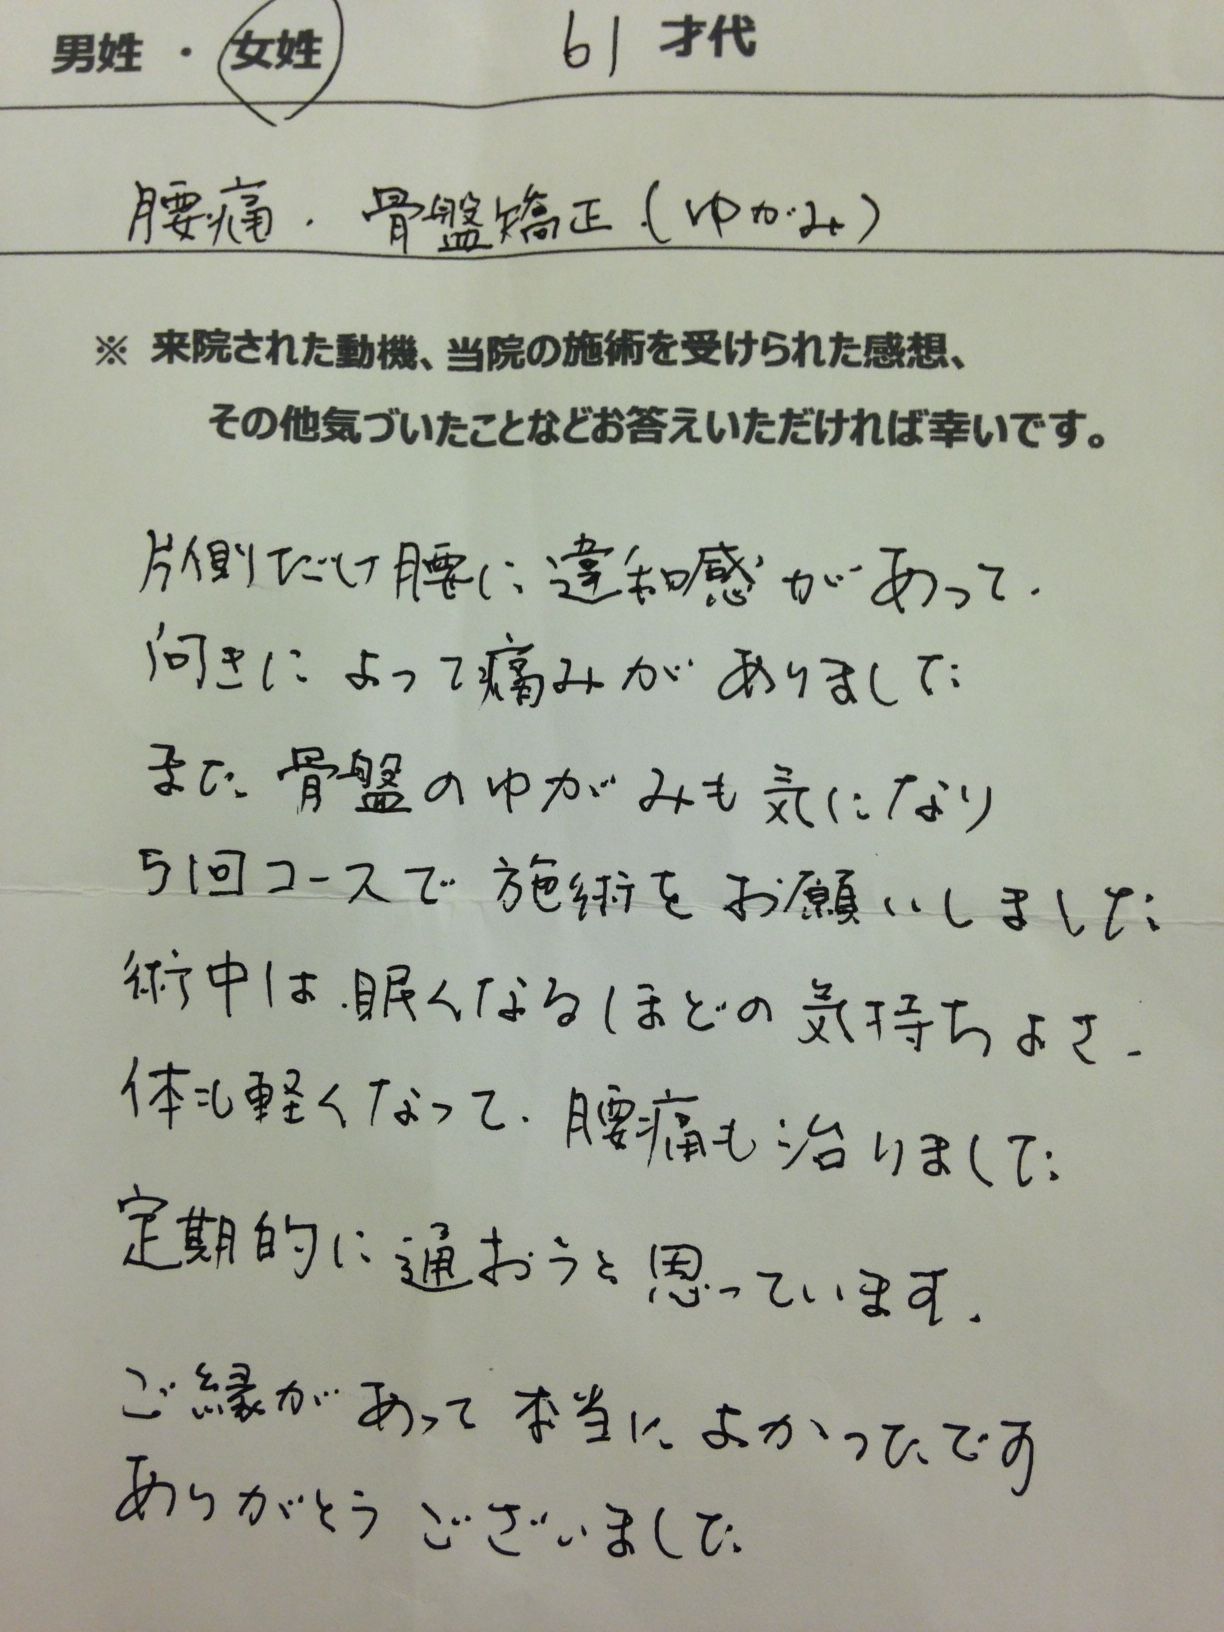 男姓 ・ 女姓　61 才代
腰痛・骨盤矯正（ゆがみ）
※ 来院された動機、当院の施術を受けられた感想、
その他気づいたことなどお答えいただければ幸いです。
片側だけ腰に違和感があって、
向きによって痛みがありました
また、骨盤のゆがみも気になり
51回コースで施術をお願いしました
術中は、眠くなるほどの気持ちよさ、
体も軽くなって、腰痛も治りました
定期的に通おうと思っています。
ご縁があって本当によかったです
ありがとうございました